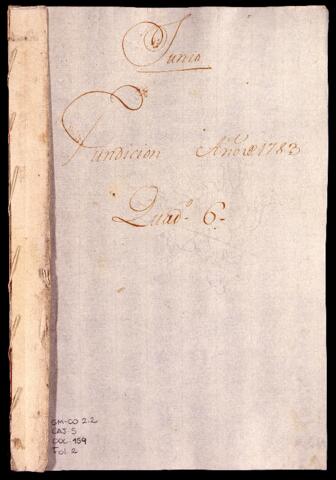 Junio
Fundicion Año de 1783
Quad.º 6.
GM-CO 2.2
CAJ. 5
DOC. 159
Fol. 2